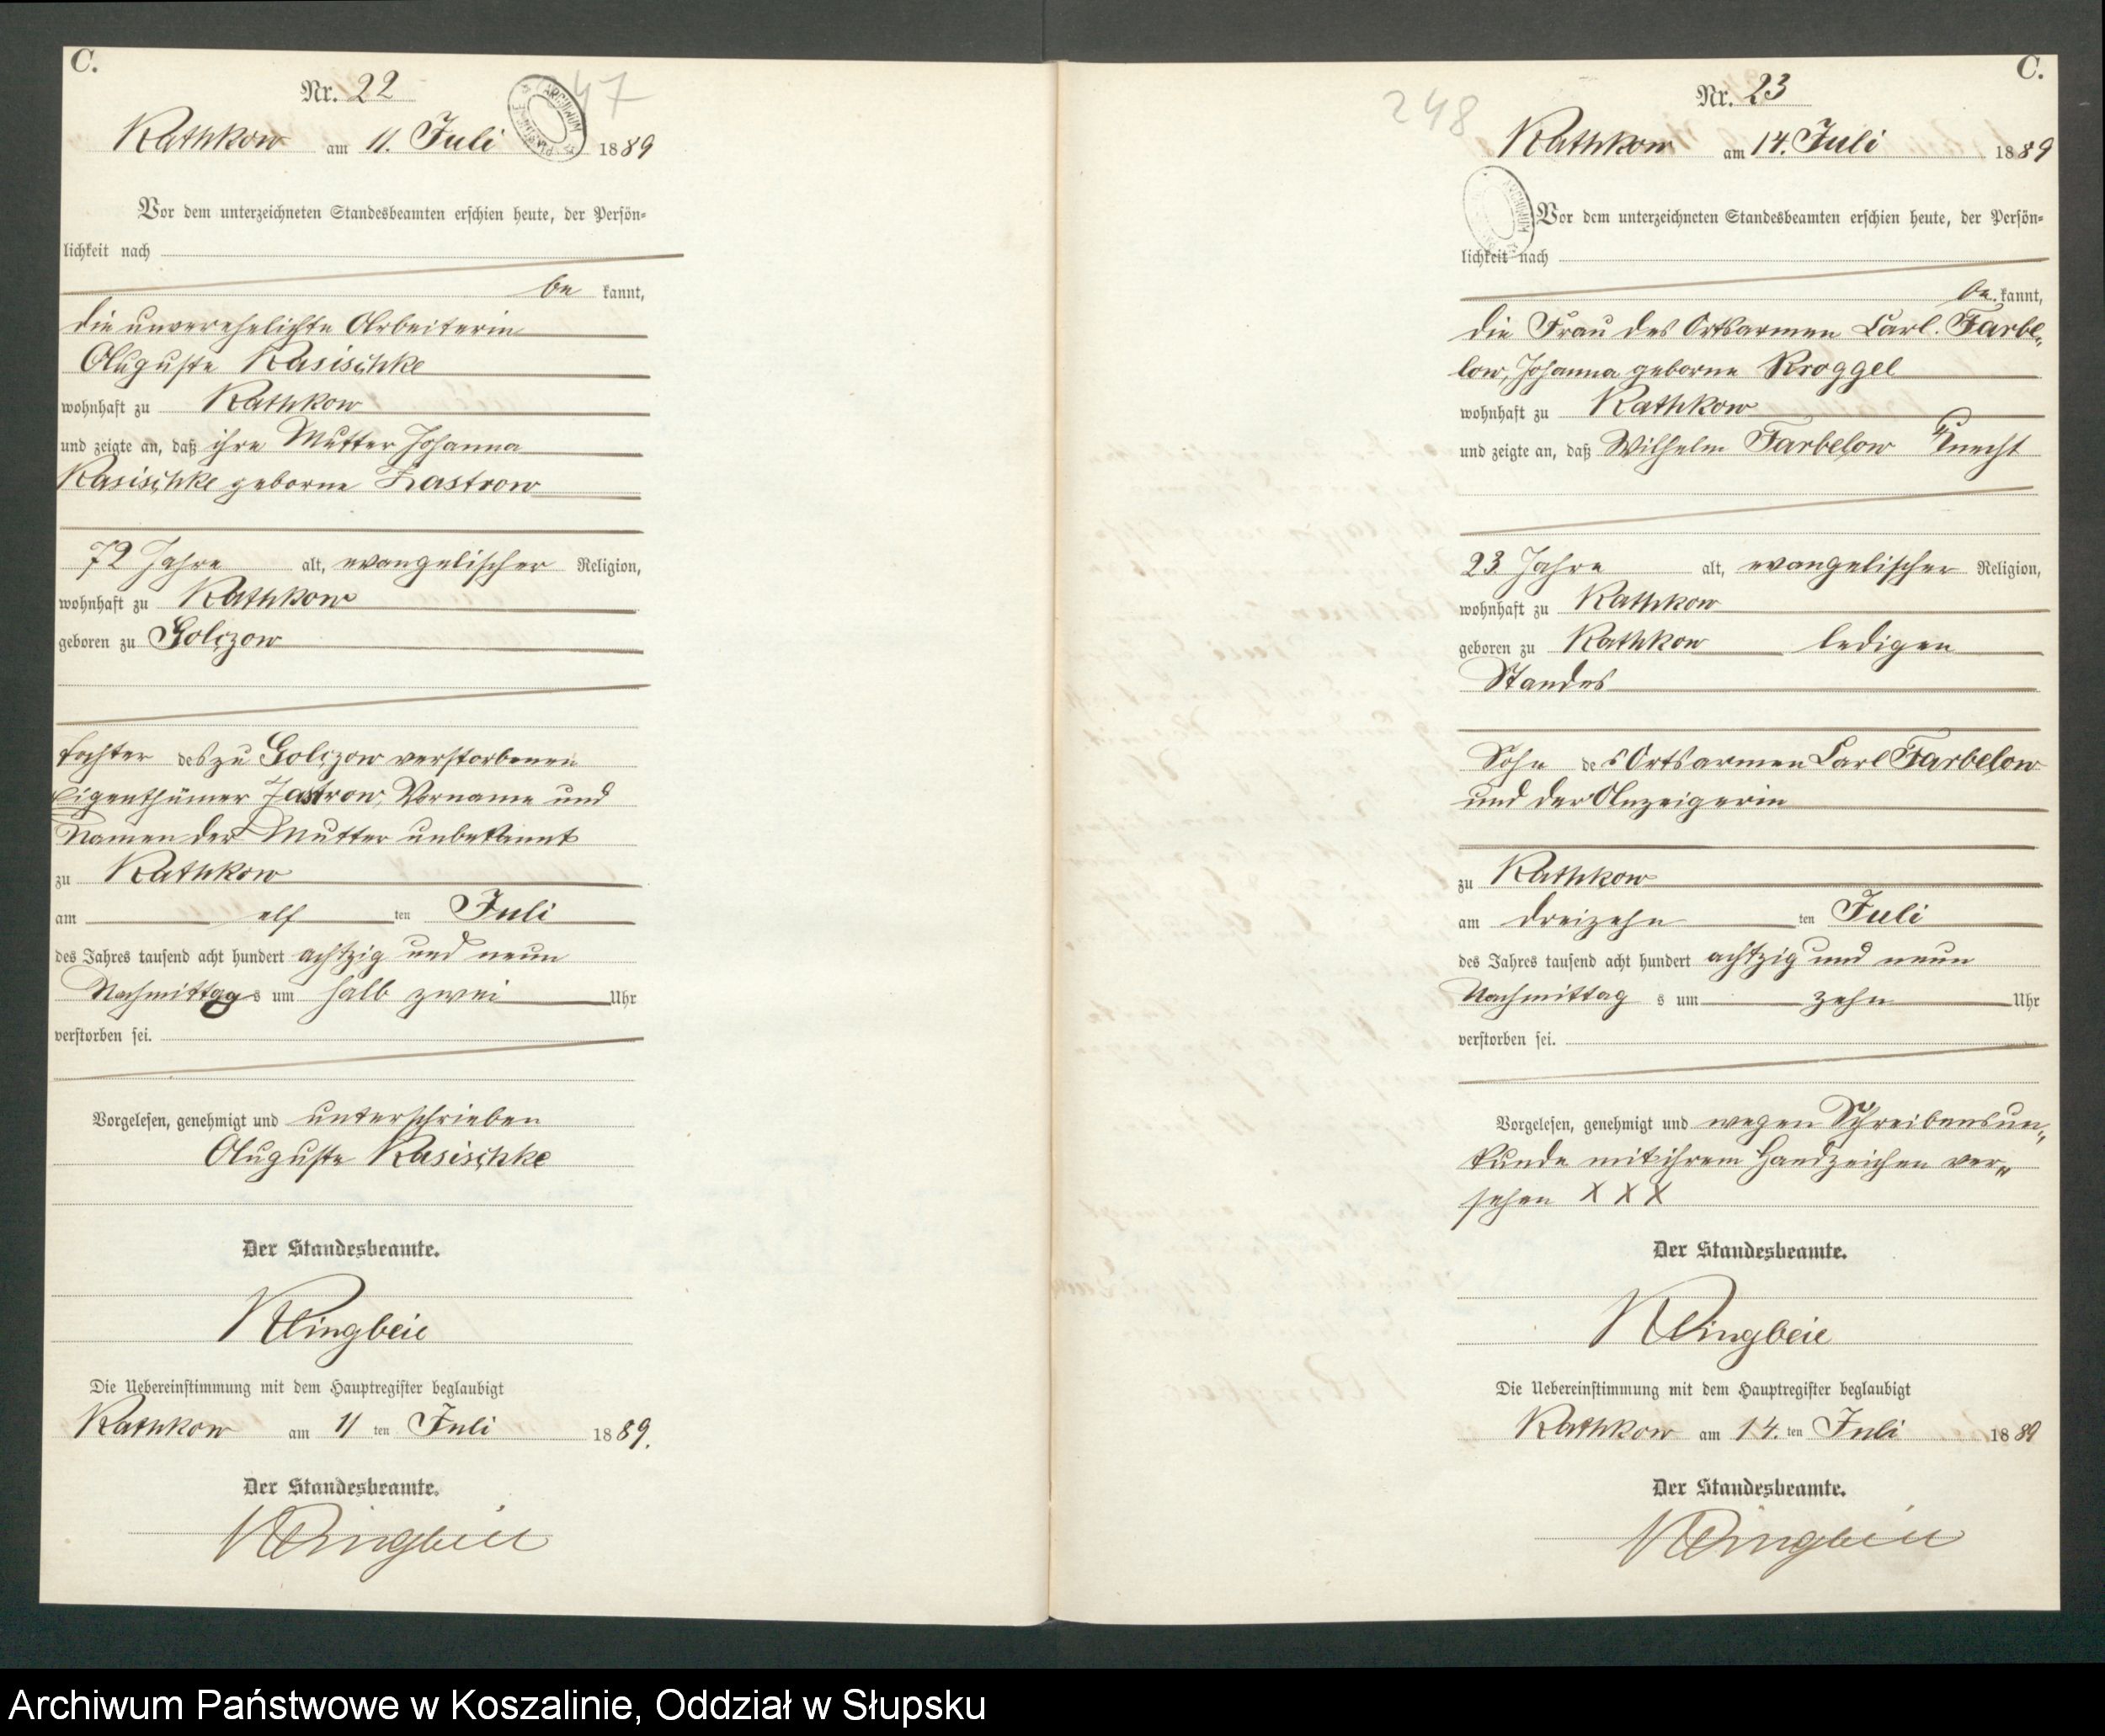 C.
Nr. 22
47
Rathkow am 11. Juli 1889
Vor dem unterzeichneten Standesbeamten erschien heute, der Persön-
lichkeit nach
be kannt,
die unverehelichte Arbeiterin
Auguste Kasischke
wohnhaft zu Rathkow
und zeigte an, daß ihre Mutter Johanna
Kasischke geborne Zastrow
72 Jahre alt, evangelischer Religion,
wohnhaft zu Rathkow
geboren zu Golczow
Tochter des zu Golczow verstorbenen
Eigenthümer Zastrow, Vorname und
Namen der Mutter unbekannt
zu Rathkow
am elf ten Juli
des Jahres tausend acht hundert achtzig und neun
Nachmittags um halb zwei Uhr
verstorben sei.
Vorgelesen, genehmigt und unterschrieben
Auguste Kasischke
Der Standesbeamte.
Klingbeil
Die Uebereinstimmung mit dem Hauptregister beglaubigt
Rathkow am 11 ten Juli 1889.
Der Standesbeamte.
Klingbeil
C.
Nr. 23
248
Rathkow am 14. Juli 1889
Vor dem unterzeichneten Standesbeamten erschien heute, der Persön-
lichkeit nach
be kannt,
die Frau des Ortsarmen Carl Farbe-
low, Johanna geborne Kroggel
wohnhaft zu Rathkow
und zeigte an, daß Wilhelm Farbelow Knecht
23 Jahre alt, evangelischer Religion,
wohnhaft zu Rathkow
geboren zu Rathkow ledigen
Standes
Sohn des Ortsarmen Carl Farbelow
und der Anzeigerin
zu Rathkow
am dreizehn ten Juli
des Jahres tausend acht hundert achtzig und neun
Nachmittag s um zehn Uhr
verstorben sei.
Vorgelesen, genehmigt und wegen Schreibensun-
kunde mit ihrem Handzeichen ver-
sehen X X X
Der Standesbeamte.
Klingbeil
Die Uebereinstimmung mit dem Hauptregister beglaubigt
Rathkow am 14. ten Juli 1889
Der Standesbeamte.
Klingbeil
Archiwum Państwowe w Koszalinie, Oddział w Słupsku